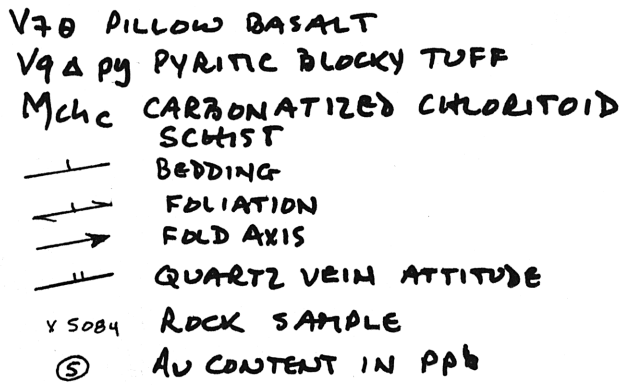 V7θ PILLOW BASALT
V9 Δ py PYRITIC BLOCKY TUFF
Mchc CARBONATIZED CHLORITOID
SCHIST
BEDDING
FOLIATION
FOLD AXIS
QUARTZ VEIN ATTITUDE
x 5084 ROCK SAMPLE
5 AU CONTENT IN PPb